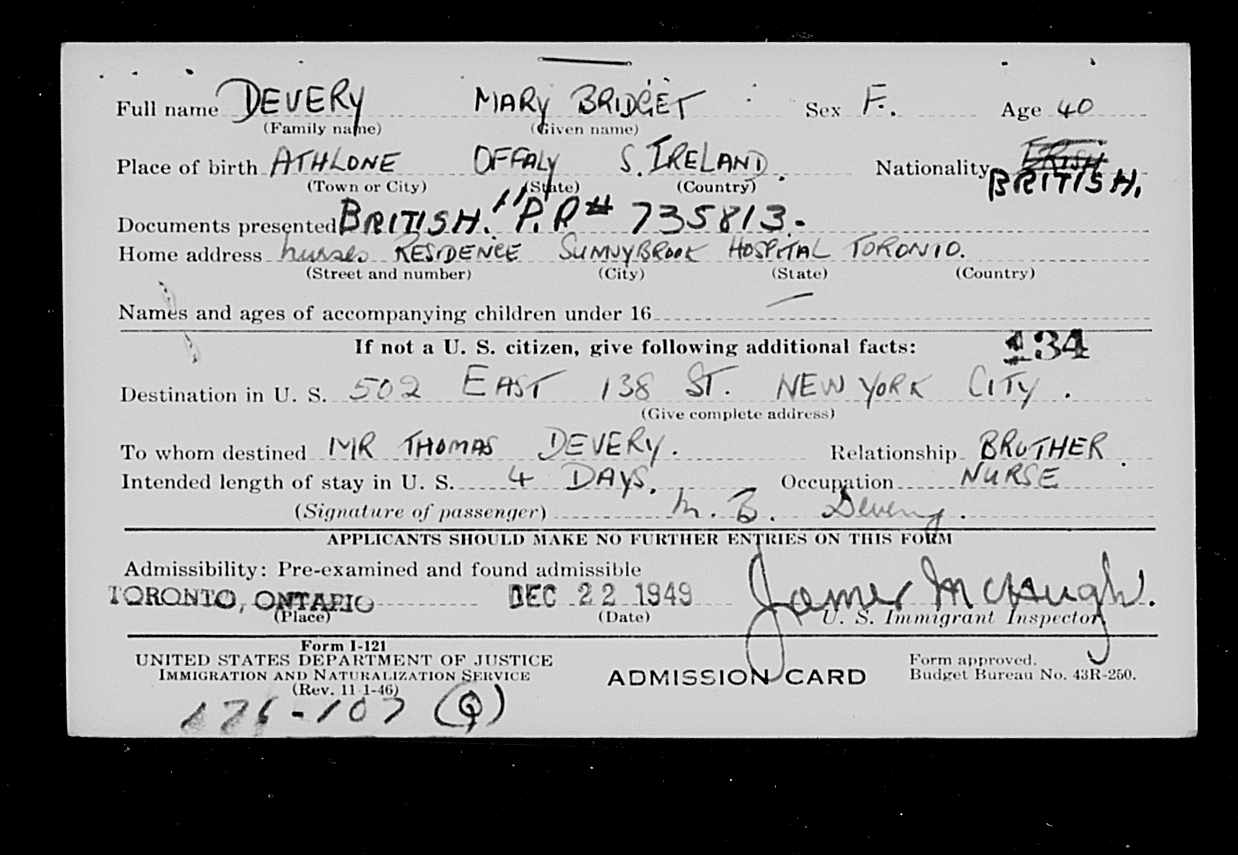 Full name DEVERY MARY BRIDGET Sex F. Age 40
(Family name) (Given name)
Place of birth ATHLONE OFFALY S. IRELAND. Nationality IRISH BRITISH.
(Town or City) (State) (Country)
Documents presented BRITISH. "P.P# 735813.
Home address nurses RESIDENCE SUNNYBROOK HOSPITAL TORONTO.
(Street and number) (City) (State) (Country)
Names and ages of accompanying children under 16 —
If not a U. S. citizen, give following additional facts: 134
Destination in U. S. 502 EAST 138 ST. NEW YORK CITY.
(Give complete address)
To whom destined MR THOMAS DEVERY. Relationship BROTHER.
Intended length of stay in U. S. 4 DAYS. Occupation NURSE
(Signature of passenger) M. B. Devery.
APPLICANTS SHOULD MAKE NO FURTHER ENTRIES ON THIS FORM
Admissibility: Pre-examined and found admissible
TORONTO, ONTARIO DEC 22 1949 James McHugh.
(Place) (Date) U. S. Immigrant Inspector
Form I-121
UNITED STATES DEPARTMENT OF JUSTICE
IMMIGRATION AND NATURALIZATION SERVICE
(Rev. 11-1-46)
ADMISSION CARD
Form approved.
Budget Bureau No. 43R-250.
(9)